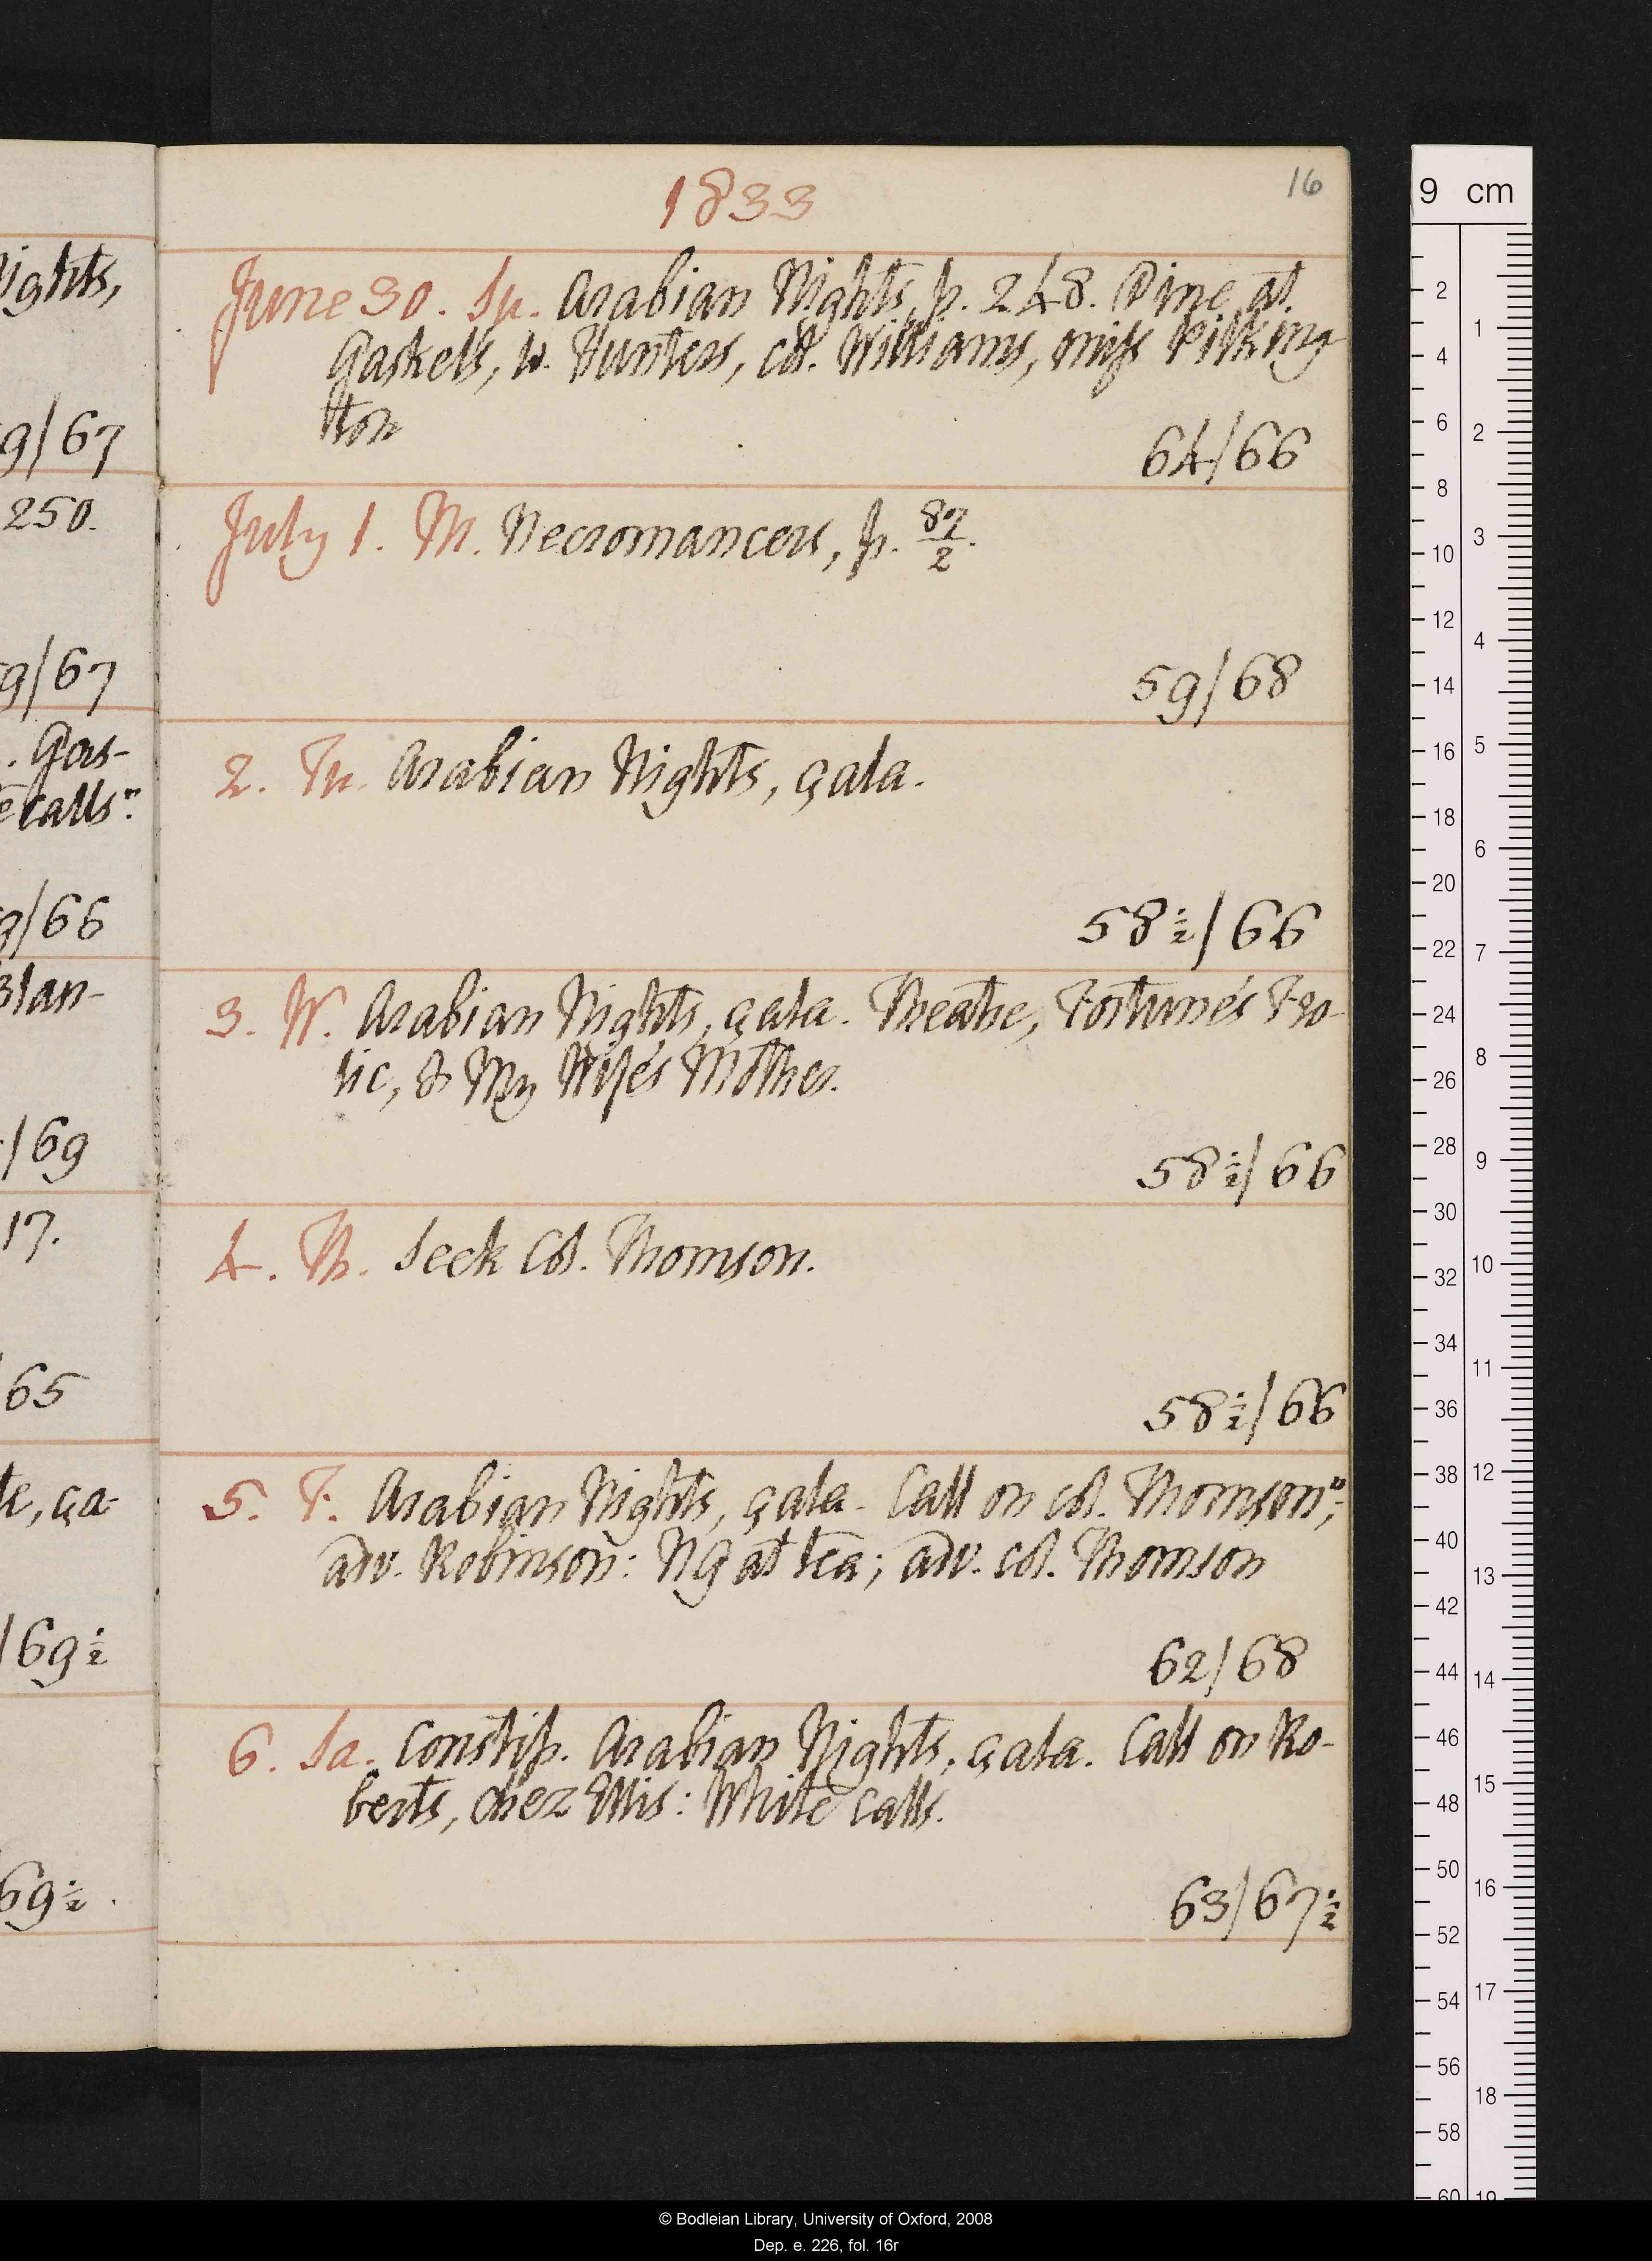 1833
16
June 30. Su. Arabian Nights, p. 248. Dine at
Gaskels, w. Hunters, col. Williams, miss Pilking
ton
64/66
July 1. M. Necromancers, p. 87/2.
59/68
2. Tu. Arabian Nights, çala.
58½/66
3. W. Arabian Nights, çala. Theatre, Fortune's Fro-
lic, & My Wife's Mother.
58½/66
4. Th. Seek Col. Thomson.
58½/66
5. F. Arabian Nights, çala. Call on col. Thomsonⁿ;
adv. Robinson: NG at tea; adv. col. Thomson
62/68
6. Sa. Constip. Arabian Nights, çala. Call on Ro-
berts, chez Ellis: White calls.
63/67½
ights,
9/67
250.
9/67
. Gas-
calls
9/66
lan-
/69
17.
65
te, ça-
/69½
69½.
9 cm
2 4 6 8 10 12 14 16 18 20 22 24 26 28 30 32 34 36 38 40 42 44 46 48 50 52 54 56 58 60
1 2 3 4 5 6 7 8 9 10 11 12 13 14 15 16 17 18 19
© Bodleian Library, University of Oxford, 2008
Dep. e. 226, fol. 16r